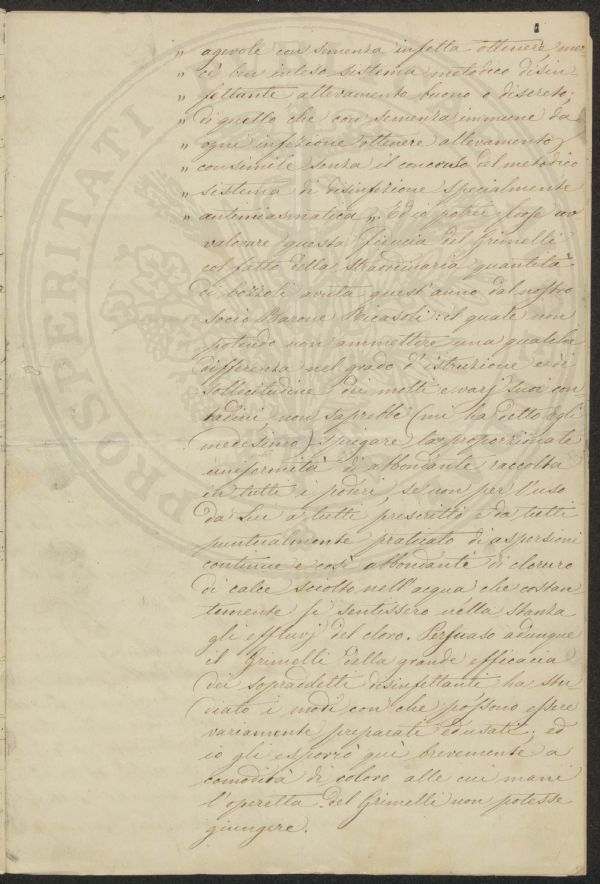 " agevole con semenza infetta ottenere mer
" cè ben inteso sistema metodico disin_
" fettante allevamento buono o discreto;
" di quello che con semenza immune da
" ogni infezione ottenere allevamento
" consimile senza il concorso del metodico
" sistema di disinfezione specialmente
" antimiasmatica „ Ed io potrei forse av
valorare questa fiducia del Grimelli
col fatto della straordinaria quantità
di bozzoli avuta quest'anno dal nostro
socio Barone Ricasoli: il quale non
potendo non ammettere una qualche
differenza nel grado d'istruzione e di
sollecitudine dei molti e varj suoi con_
tadini non saprebbe (mi ha detto egli
medesimo) spiegare la proporzionata
uniformità di abbondante raccolta
in tutti i poderi, se non per l'uso
da Lui a tutti prescritto e da tutti
puntualmente praticato di aspersioni
continue e così abbondanti di cloruro
di calce sciolto nell'acqua che costan_
temente si sentissero nella stanza
gli effluvj del cloro. Persuaso adunque
il Grimelli della grande efficacia
dei sopraddetti disinfettanti ha stu
diato i modi con che possono essere
variamente preparati ed usati; ed
io gli esporrò quì brevemente a
comodità di coloro alle cui mani
l'operetta del Grimelli non potesse
giungere.
PROSPERITATI